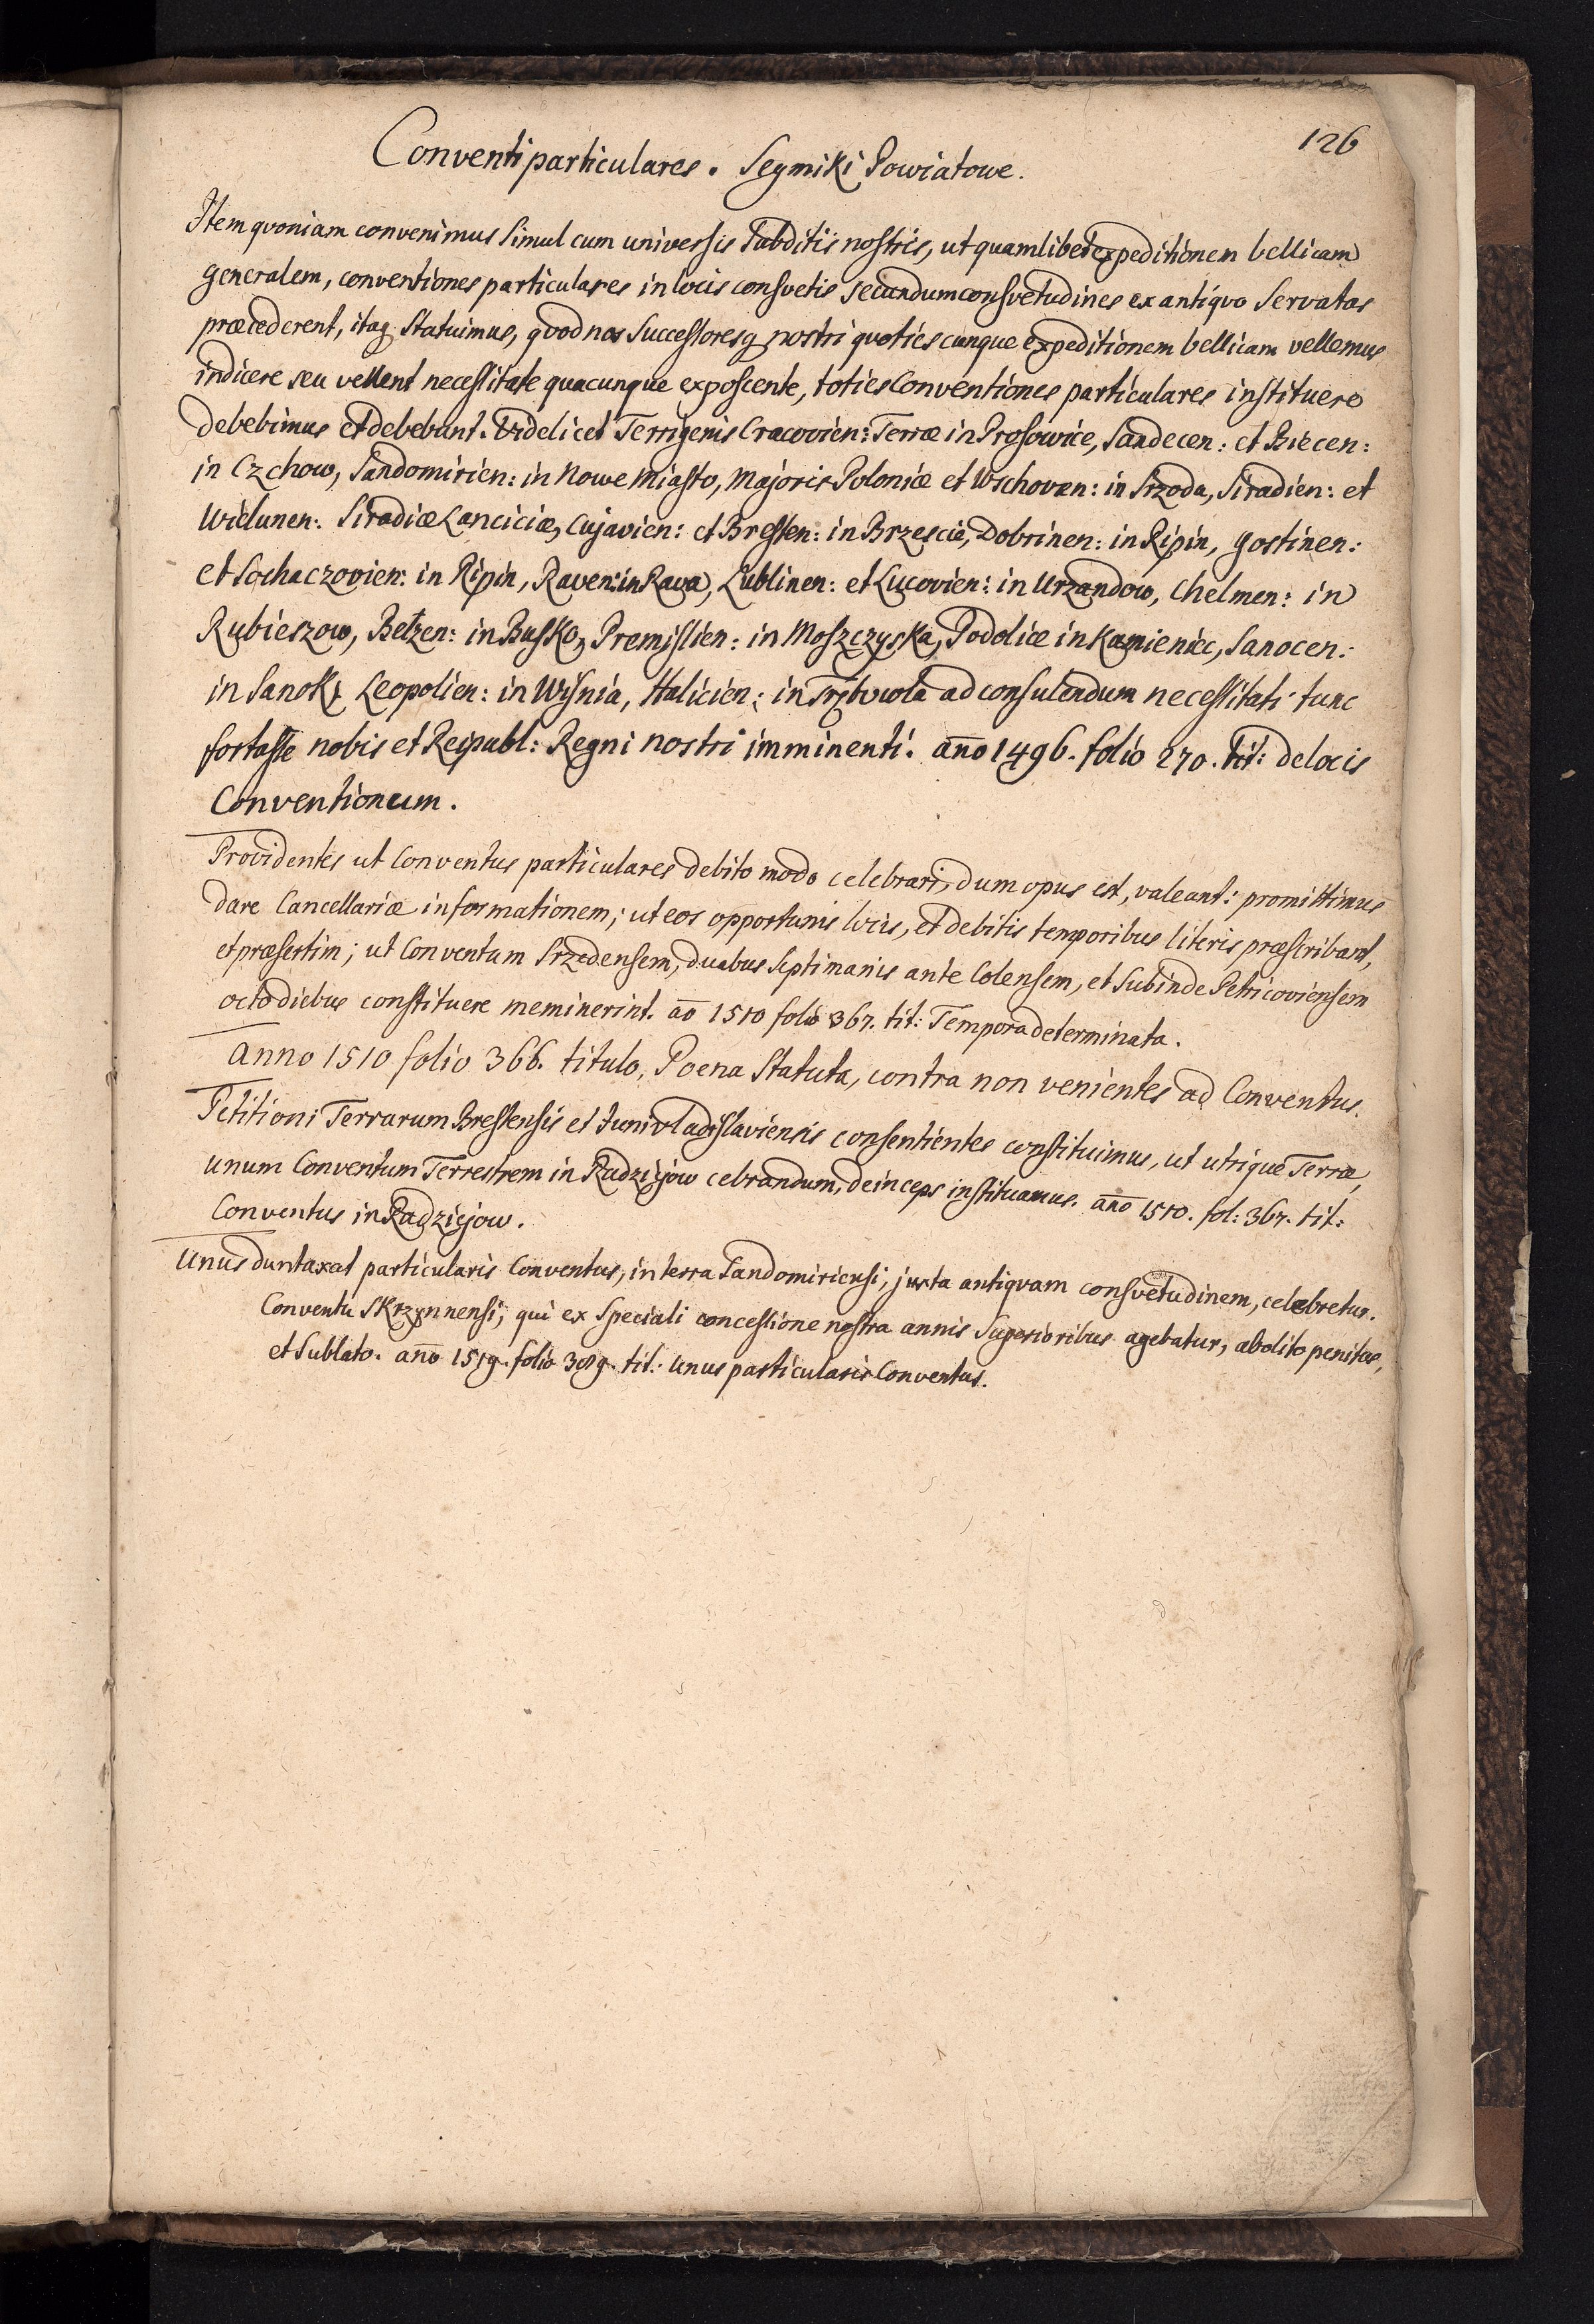 126
Conventi particulares. Seymiki Powiatowe.
Item qvoniam convenimus Simul cum universis Subditis nostris, ut quamlibet expeditionem bellicam
generalem, conventiones particulares in locis consvetis secundum consvetudines ex antiqvo Servatas
præcederent, itaq Statuimus, qvod nos Successoresq nostri quoties cunque expeditionem bellicam vellemus
indicere seu vellent necessitate quacunque exposcente, toties Conventiones particulares instituere
debebimus et debebunt. Videlicet Terrigenis Cracovien: Terræ in Prosowice, Sandecen: et Biecen:
in Czchow, Sandomirien: in Nowe Miasto, Majoris Poloniæ et Wschoven: in Srzoda, Siradien: et
Wielunen: Siradiæ Lanciciæ, Cujavien: et Bresten: in Brzescie, Dobrinen: in Ripin, Gostinen:
et Sochaczovien: in Ripin, Raven: in Rava, Lublinen: et Lucovien: in Urzandow, Chelmen: in
Rubieszow, Betzen: in Busko, Premislien: in Moszczyska, Podoliæ in Kamieniec, Sanocen:
in Sanok, Leopolien: in Wisnia, Halicien: in Trębowla ad consulendum necessitati tunc
fortasse nobis et Reipubl: Regni nostri imminenti. año 1496. folio 270. tit: de locis
Conventionum.
Providentes ut Conventus particulares debito modo celebrari, dum opus est, valeant: promittimus
dare Cancellariæ informationem; ut eos opportunis locis, et debitis temporibus literis præscribant,
et præsertim; ut Conventum Srzedensem, duabus Septimanis ante Colensem, et Subinde Petricoviensem
octo diebus constituere meminerint. ao 1510 folio 367. tit: Tempora determinata.
Anno 1510 folio 366. titulo, Poena Statuta, contra non venientes ad Conventus.
Petitioni Terrarum Brestensis et Junivladislaviensis consentientes constituimus, ut utrique Terræ,
unum Conventum Terrestrem in Radziejow cebrandum, deinceps instituamus. año 1510. fol: 367. tit:
Conventus in Radziejow.
Unus duntaxat particularis Conventus, in terra Sandomiriensi, juxta antiqvam consvetudinem, celebretur.
Conventu Skrzynnensi, qui ex Speciali concessione nostra annis Superioribus agebatur, abolito penitus,
et Sublato. año 1519. folio 389. tit: Unus particularis Conventus.